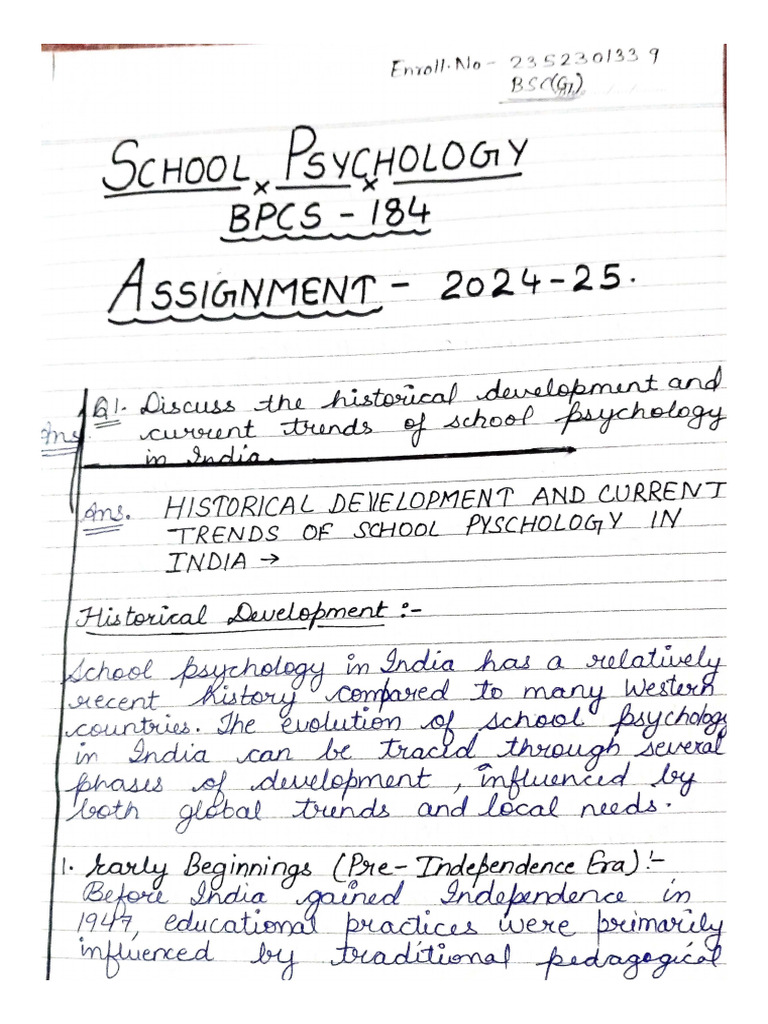 Enroll.No - 2352301339
BSC(G)
SCHOOL PSYCHOLOGY
BPCS - 184
ASSIGNMENT - 2024-25.
Q1. Discuss the historical development and
Ans. current trends of school psychology
in India.
Ans. HISTORICAL DEVELOPMENT AND CURRENT
TRENDS OF SCHOOL PYSCHOLOGY IN
INDIA →
Historical Development :-
School psychology in India has a relatively
recent history compared to many Western
countries. The evolution of school psychology
in India can be tracid through several
phases of development, influenced by
both global trends and local needs.
1. Early Beginnings (Pre-Independence Era) :-
Before India gained Independence in
1947, educational practices were primarily
influenced by traditional pedagogical